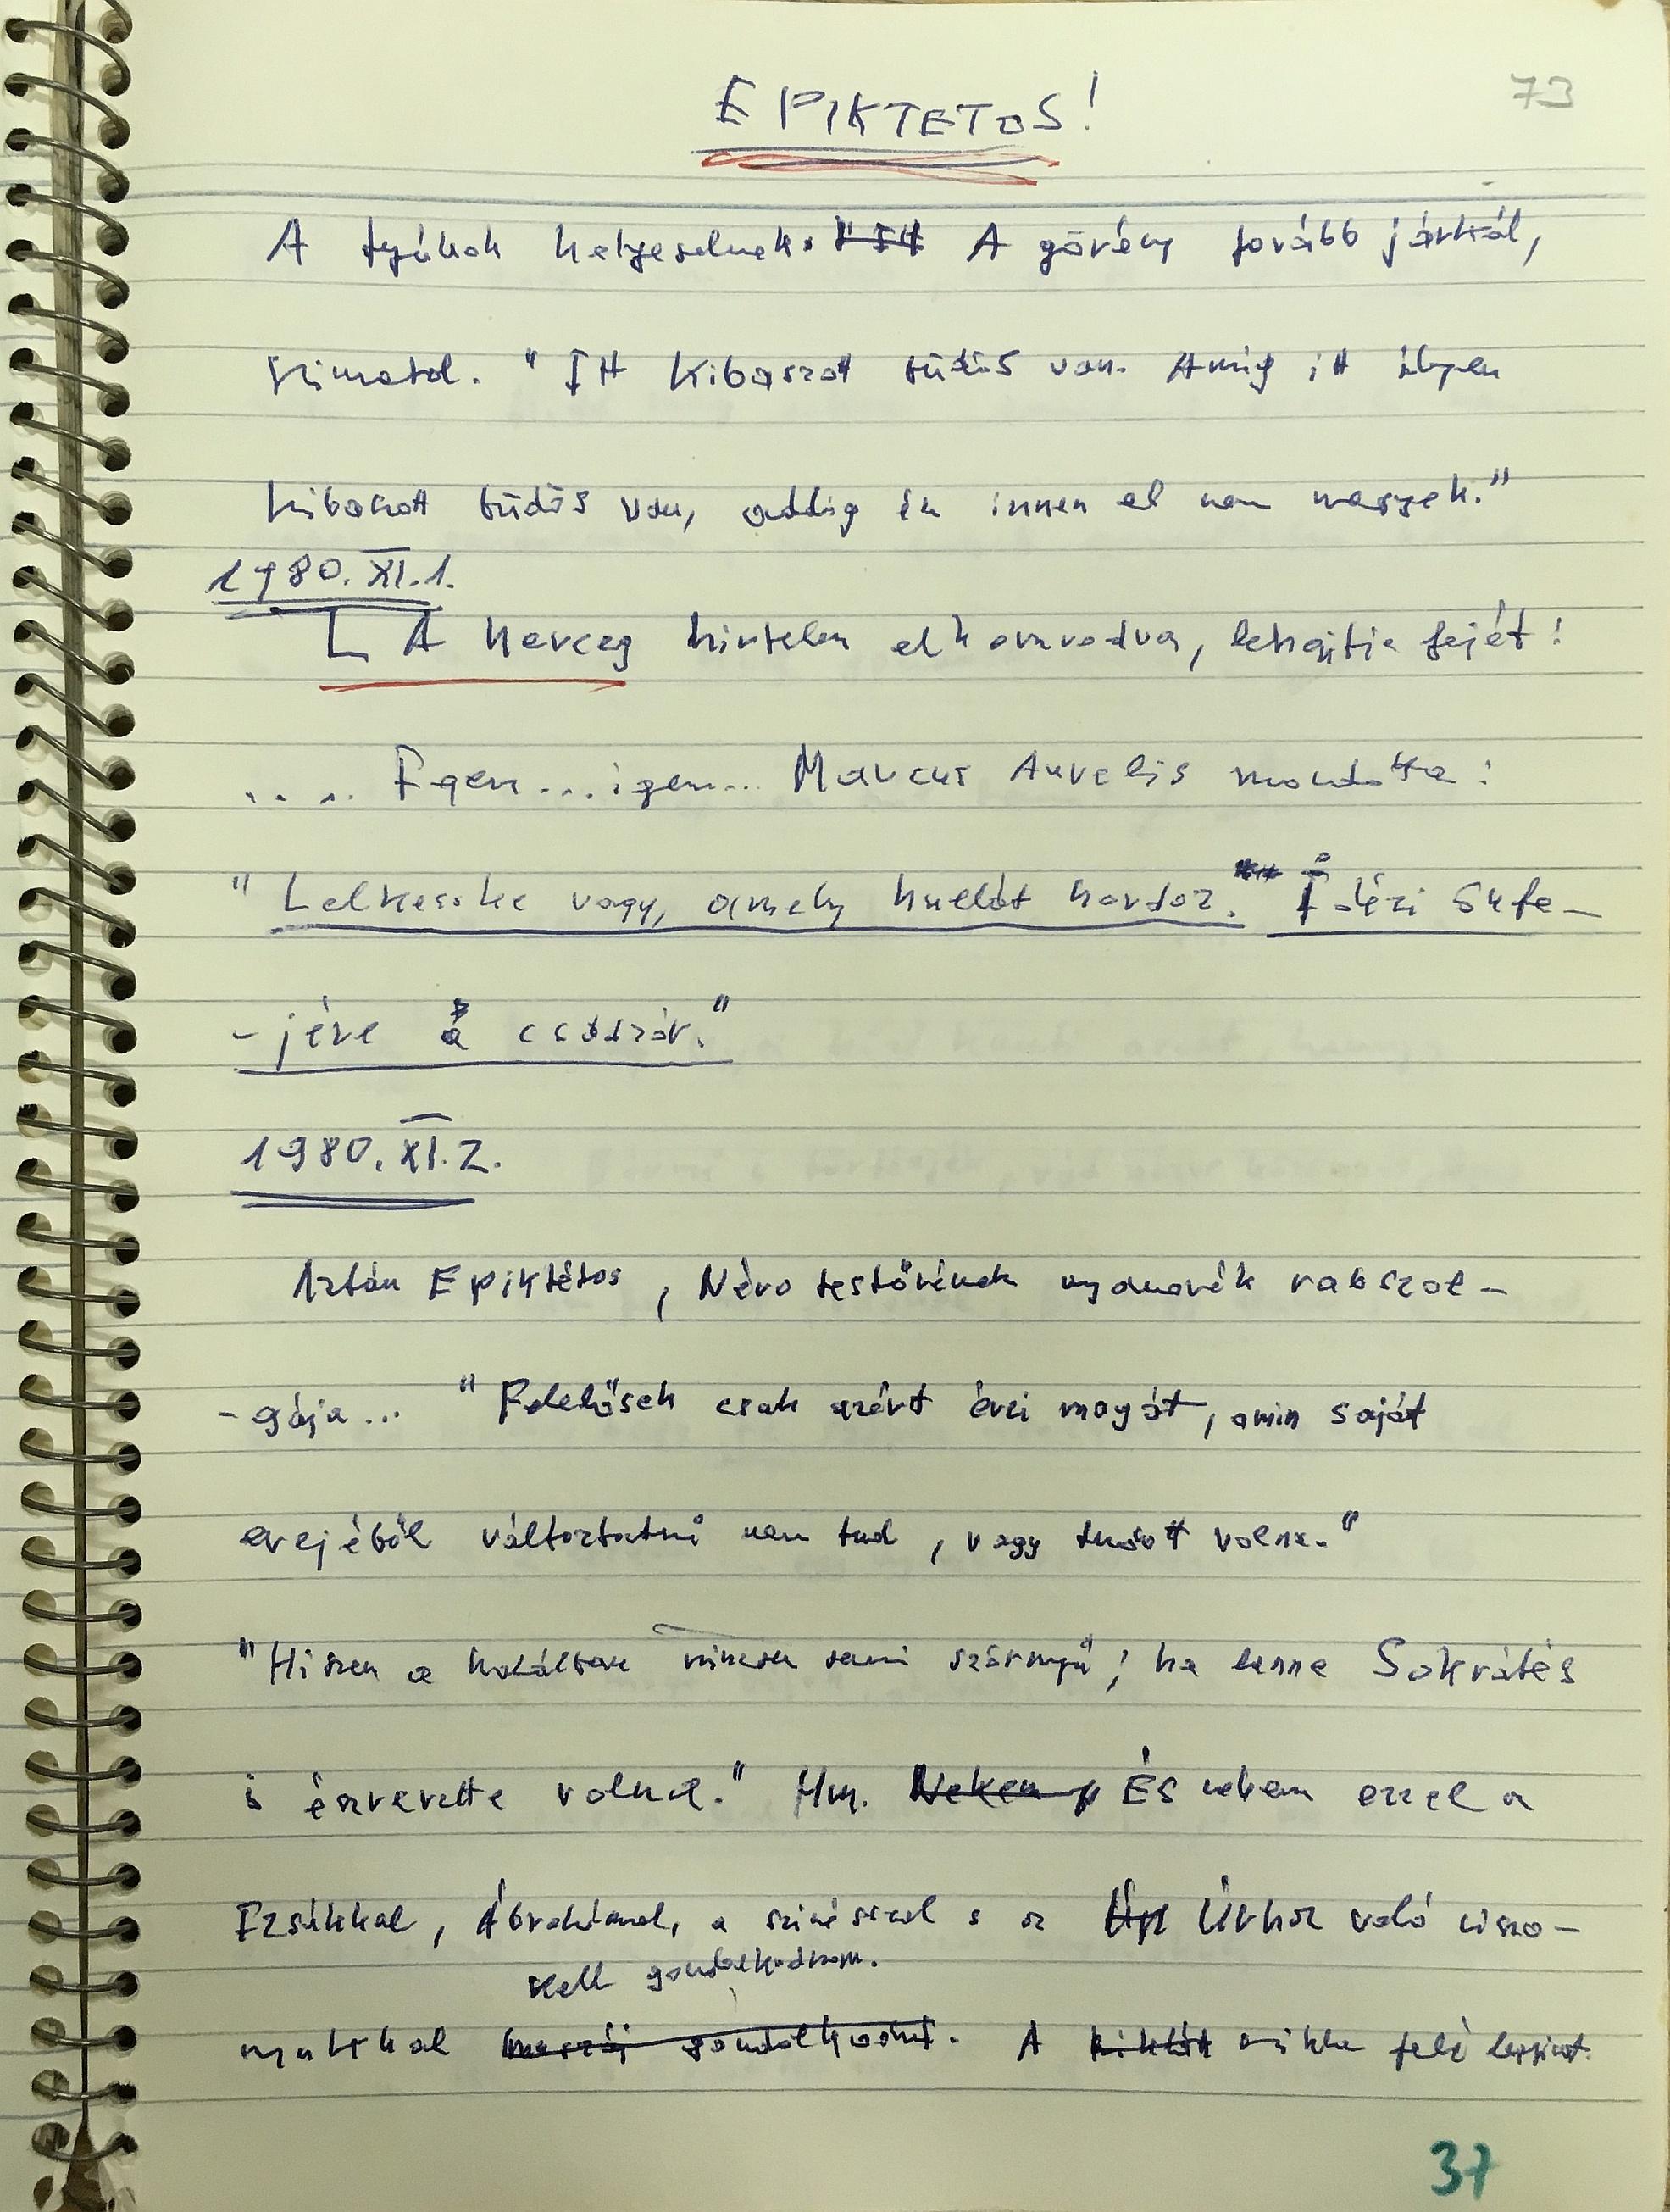 EPIKTETOS!
73
A tyúkok helyeselnek. A görény tovább járkál,
szimatol. "Itt kibaszott büdös van. Amíg itt ilyen
kibaszott büdös van, addig én innen el nem megyek."
1980. XI. 1.
A herceg hirtelen elkomorodva, lehajtja fejét:
.... Igen... igen... Marcus Aurelis mondotta:
"Lelkecske vagy, amely hullát hordoz." Idézi Süfe-
-jére a császár."
1980. XI. 2.
Aztán Epiktétos, Néro testőrének nyomorék rabszol-
-gája... "Felelősek csak azért érzi magát, amin saját
erejéből változtatni nem tud, vagy tudott volna."
"Hiszen a halálban nincsen semi szörnyű; ha lenne Sokrátés
is észrevette volna." Hm. És nekem ezzel a
Izsákkal, Ábrahámmal, a színésszel s az Úrhoz való viszo-
kell gondolkodnom.
nyukkal A felé
37